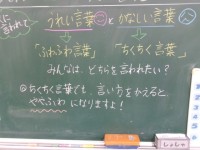 言われて
うれしい言葉 と かなしい言葉
「ふわふわ言葉」 「ちくちく言葉」
みんなは どちらを言われたい？
◎ちくちく言葉でも、言い方をかえると
ややふわ になりますよ！